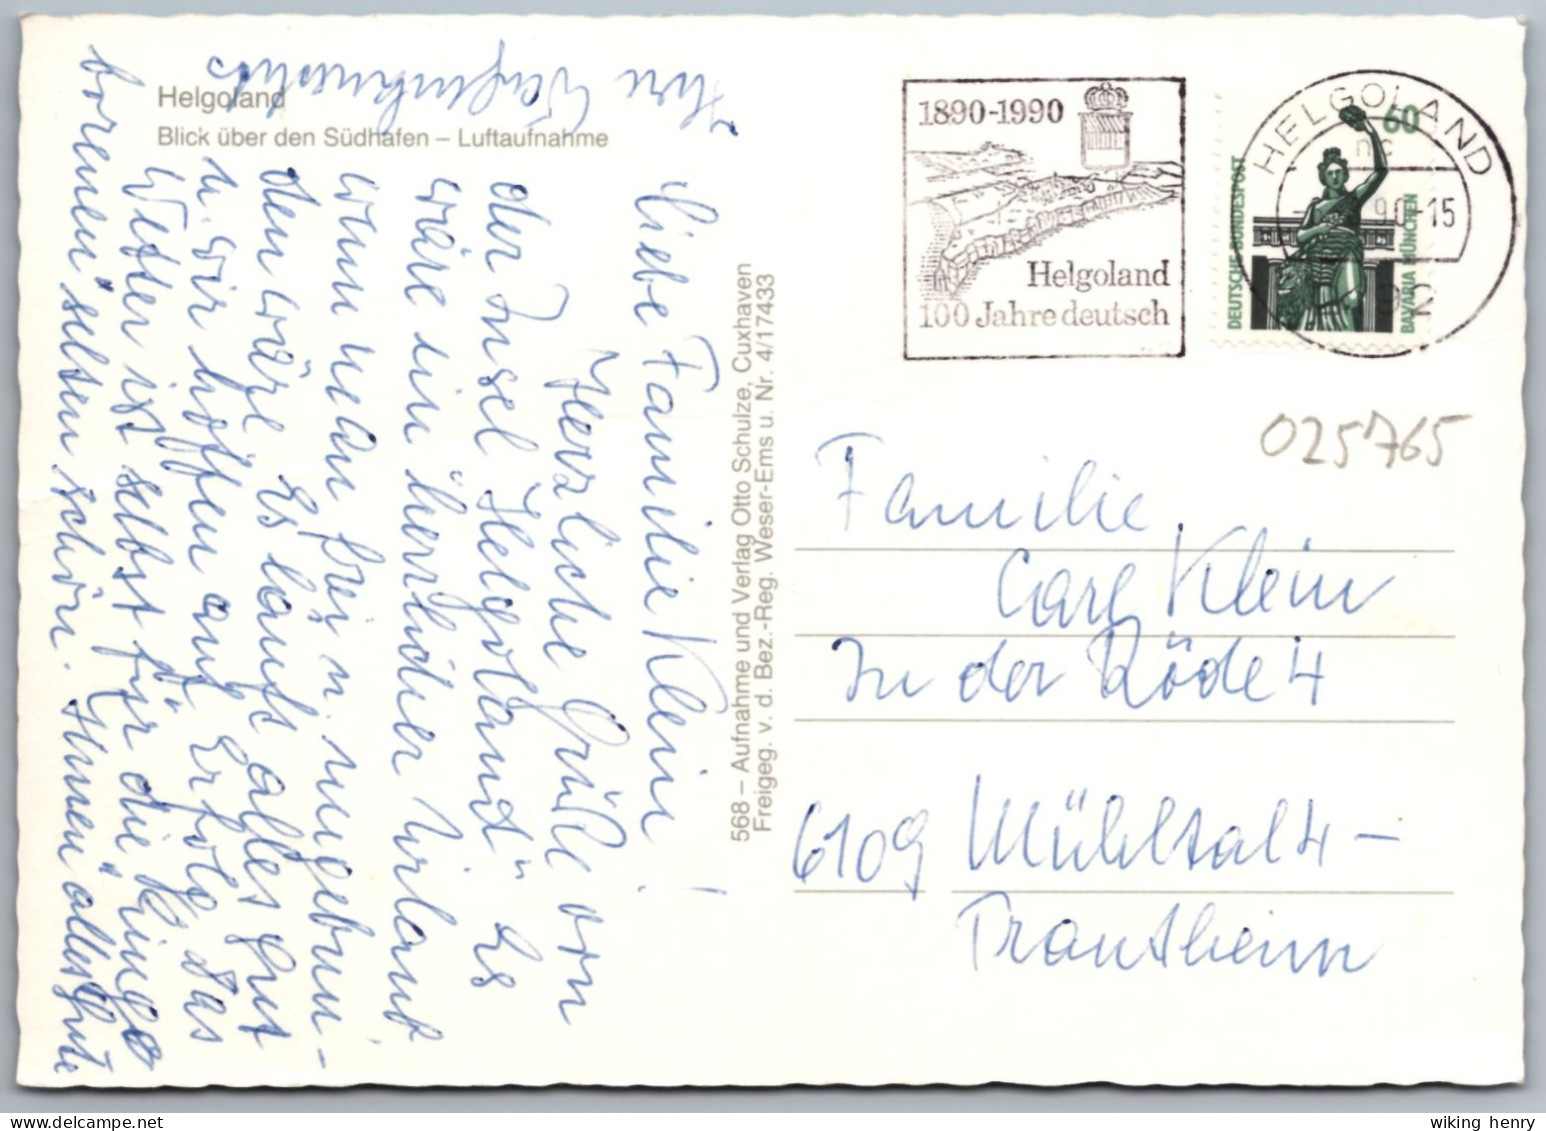 Helgoland
Blick über den Südhafen – Luftaufnahme
Liebe Familie Klein!
Herzliche Grüße von
der Insel Helgoland" Es
wäre ein herrlicher Urlaub
wenn man frei u. ungebun-
den wäre Es läuft alles gut
u. wir hoffen auf Erfolg Das
Wetter ist selbst für die "Einge
borenen" selten schön. Ihnen alles Gute
Ihre
568 – Aufnahme und Verlag Otto Schulze, Cuxhaven
Freigeg. v. d. Bez.-Reg. Weser-Ems u. Nr. 4/17433
1890-1990
Helgoland
100 Jahre deutsch
HELGOLAND
90-15
60
DEUTSCHE BUNDESPOST
BAVARIA MÜNCHEN
025765
Familie
Carl Klein
In der Röde 4
6109 Mühltal 4 –
Trautheim
wiking henry